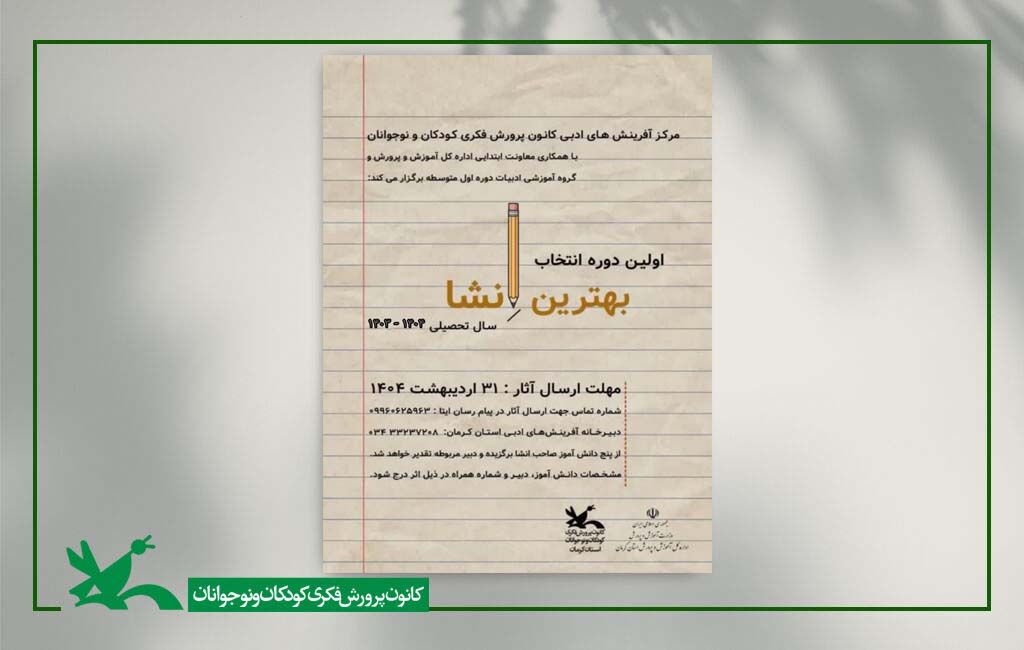 مرکز آفرینش های ادبی کانون پرورش فکری کودکان و نوجوانان
با همکاری معاونت ابتدایی اداره کل آموزش و پرورش و
گروه آموزشی ادبیات دوره اول متوسطه برگزار می کند:
اولین دوره انتخاب
بهترین انشا
سال تحصیلی ۱۴۰۳ - ۱۴۰۴
مهلت ارسال آثار : ۳۱ اردیبهشت ۱۴۰۴
شماره تماس جهت ارسال آثار در پیام رسان ایتا : ۰۹۹۶۰۶۲۵۹۶۳
دبیرخانه آفرینش‌های ادبی استان کرمان: ۳۳۲۳۷۲۰۸ ۰۳۴
از پنج دانش آموز صاحب انشا برگزیده و دبیر مربوطه تقدیر خواهد شد.
مشخصات دانش آموز، دبیر و شماره همراه در ذیل اثر درج شود.
کانون پرورش فکری
کودکان و نوجوانان
استان کرمان
جمهوری اسلامی ایران
وزارت آموزش و پرورش
اداره کل آموزش و پرورش استان کرمان
کانون پرورش فکری کودکان و نوجوانان